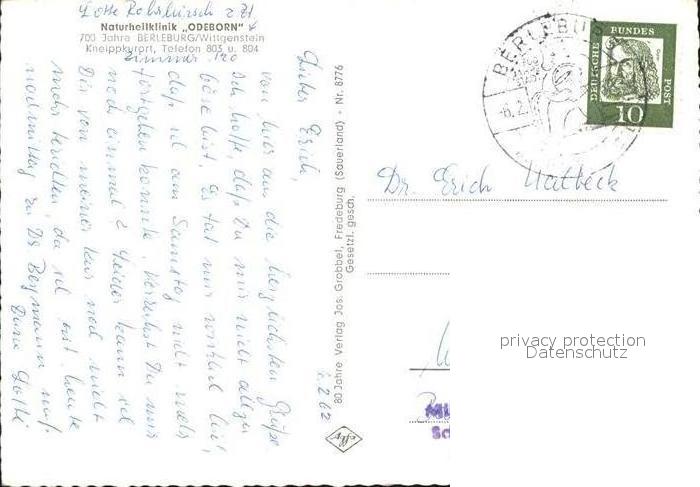 Lotte Rohrhirsch z Zt
Naturheilklinik „ODEBORN"
700 Jahre BERLEBURG/Wittgenstein
Kneippkurort, Telefon 803 u. 804
Zimmer 120
6.2.62
Lieber Erich,
von hier aus die herzlichsten Grüße
Ich hoffe, daß Du mir nicht allzu
böse bist. Es tat mir wirklich leid,
daß ich am Samstag nicht mehr
fortgehen konnte. Verzeihst Du mir
noch einmal? Leider kann ich
Dir von meiner Kur noch nicht
mehr berichten, da ich erst heute
nachmittag zu Dr Bergmann muß.
Deine Lotte
80 Jahre Verlag Jos. Grobbel, Fredeburg (Sauerland) · Nr. 8776
Gesetzl. gesch.
BERLEBURG
-6.2.
DEUTSCHE BUNDESPOST
10
Dr. Erich Hatbeck
privacy protection
Datenschutz